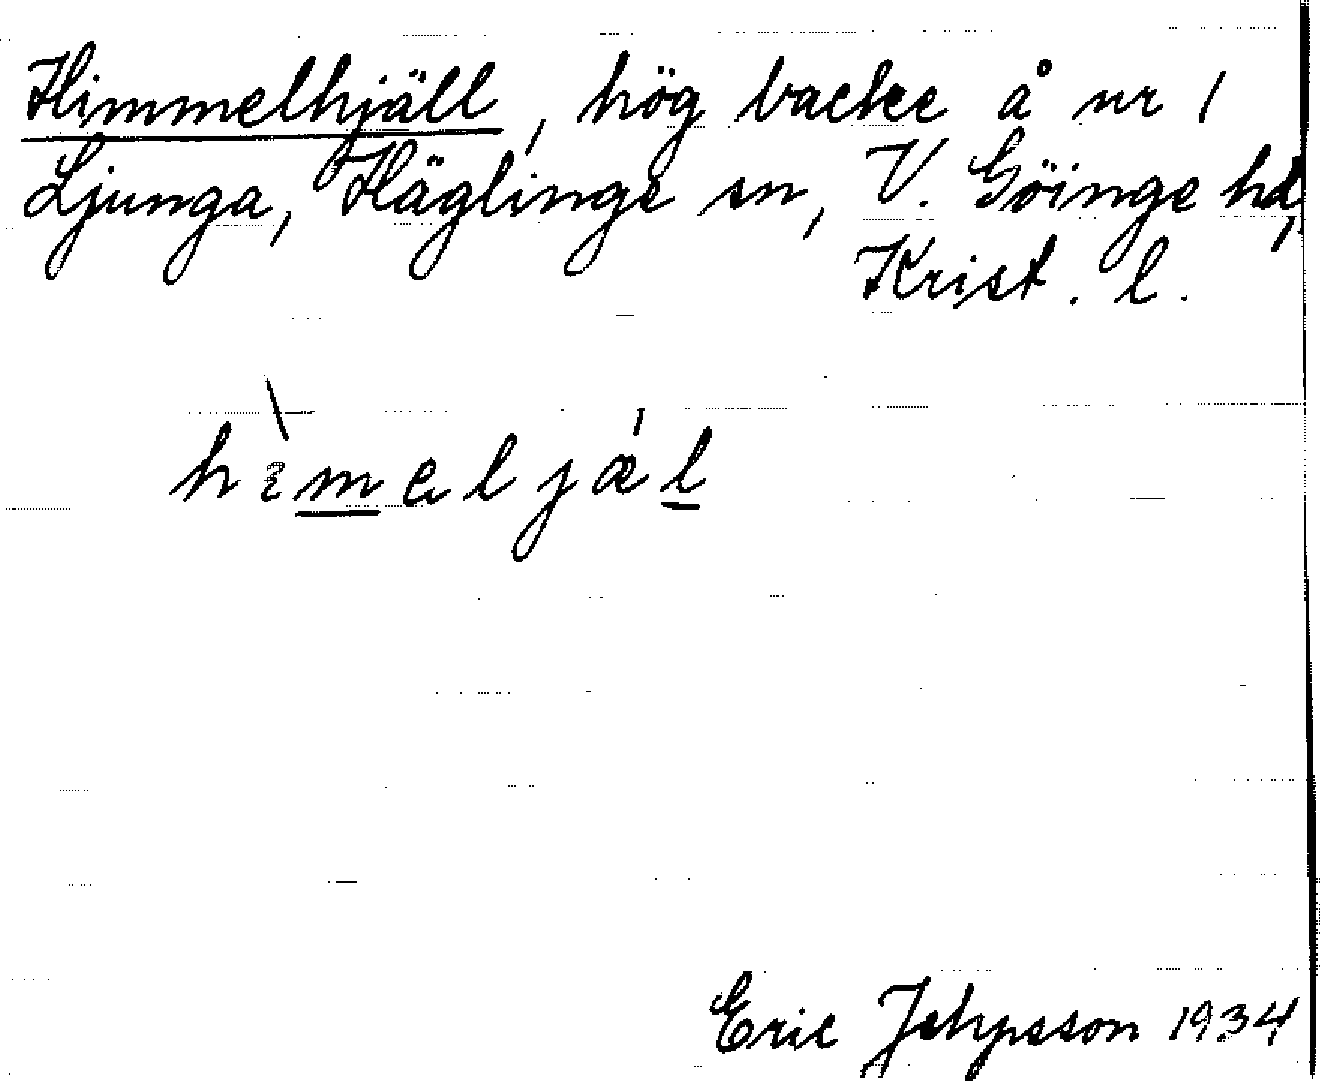 Himmelhjäll, hög backe å nr 1
Ljunga, Häglinge sn, V. Göinge hd,
Krist. l.
himeljæl
Eric 1934